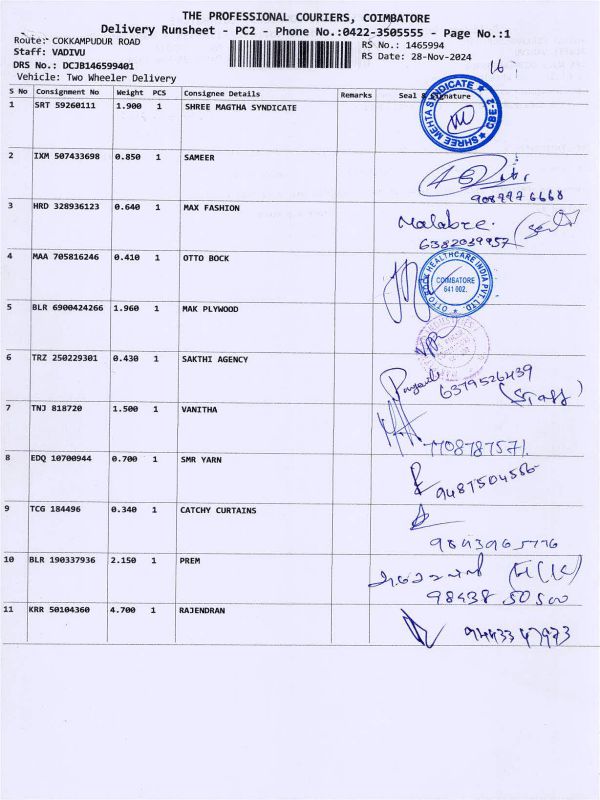 THE PROFESSIONAL COURIERS, COIMBATORE
Delivery Runsheet - PC2 - Phone No.:0422-3505555 - Page No.:1
Route: COKKAMPUDUR ROAD RS No.: 1465994
Staff: VADIVU RS Date: 28-Nov-2024
DRS No.: DCJB146599401 16
Vehicle: Two Wheeler Delivery
S No Consignment No Weight PCS Consignee Details Remarks Seal & Signature
1 SRT 59260111 1.900 1 SHREE MAGTHA SYNDICATE
SHREE MEHTA SYNDICATE CBE-2
2 IXM 507433698 0.850 1 SAMEER
3 HRD 328936123 0.640 1 MAX FASHION
6382039957
4 MAA 705816246 0.410 1 OTTO BOCK
OTTO BOCK HEALTHCARE INDIA PVT. LTD
COIMBATORE
641 002.
5 BLR 6900424266 1.960 1 MAK PLYWOOD
6 TRZ 250229301 0.430 1 SAKTHI AGENCY
6379526439
(Staff)
7 TNJ 818720 1.500 1 VANITHA
8 EDQ 10700944 0.700 1 SMR YARN
9487504556
9 TCG 184496 0.340 1 CATCHY CURTAINS
9843965776
10 BLR 190337936 2.150 1 PREM
98438 50500
11 KRR 50104360 4.700 1 RAJENDRAN
94433 47973